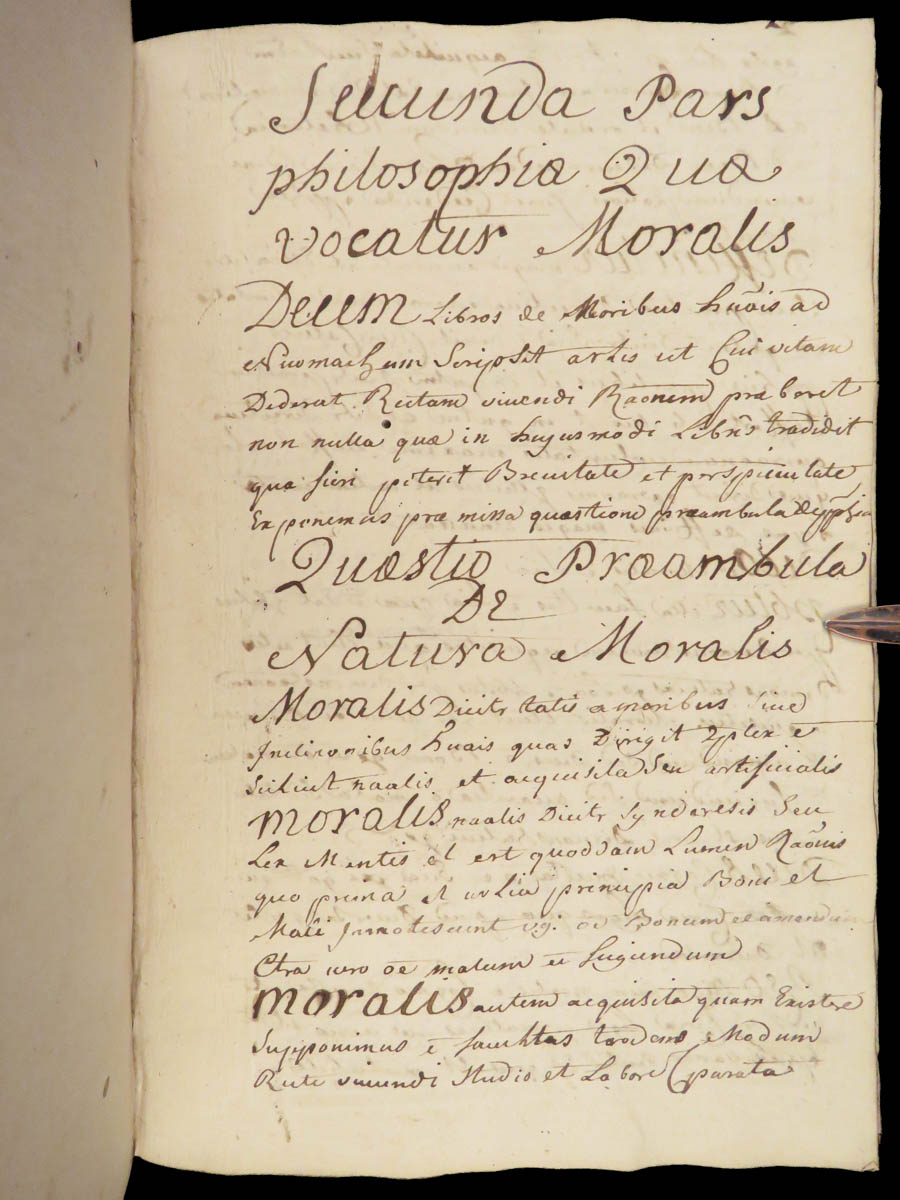 Secunda Pars
philosophiæ Quæ
vocatur Moralis
Decem Libros de Moribus huāis ad
Nicomachum Scripsit artis ut Cui vitam
Dederat Rectam vivendi Raōnem præberet
non nulla quæ in hujusmodi Libris tradidit
qua fieri poterit Brevitate et perspicuitate
Exponemus præ missa quæstione præambula de
Quæstio Præambula
DE
Natura Moralis
Moralis Dicitr talis a moribus Sive
Inclinonibus huāis quas Dirigit 2plex ē
Scilicet naalis et acquisita Seu artificialis
moralis naalis Dicitr Synderesis Seu
Lex Mentis et est quoddam Lumen Raōnis
quo prima et urlia principia Boni et
Mali Innotescunt vg. oē Bonum ee amandu
Ctra vero oē malum ee fugiendum
moralis autem acquisita quam Existere
Supponimus ē facultas tradens Modum
Recte vivendi Studio et Labore Cparata